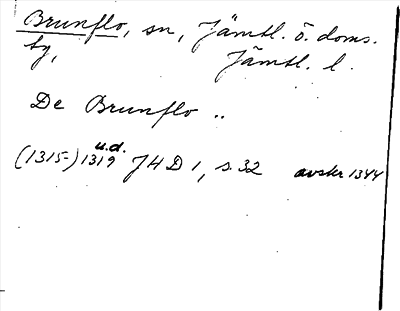 Brunflo, sn, Jämtl. ö. doms.
tg, Jämtl. l.
De Brunflo ..
u.d.
(1315-) 1319 JHD 1, s. 32 avskr 1344